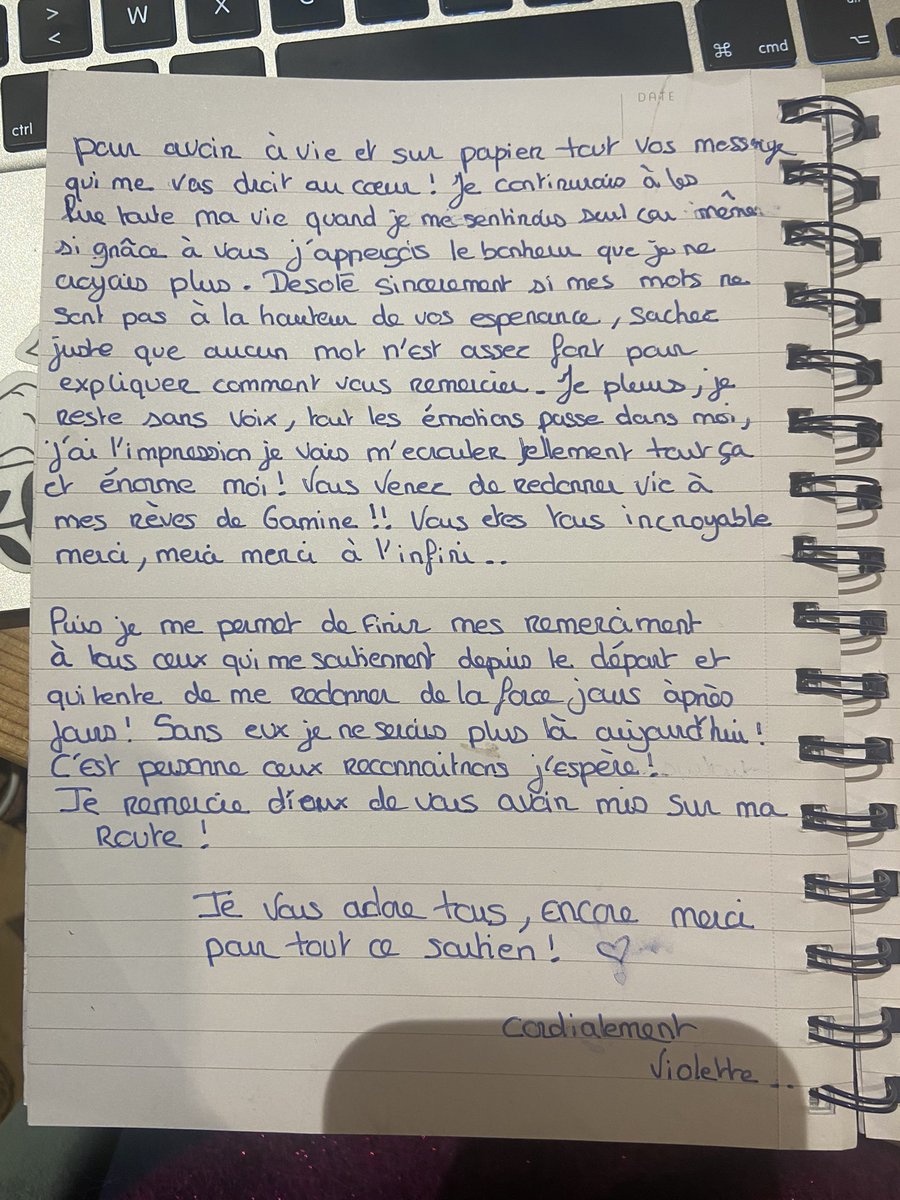 >
<
W
X
ctrl
⌘ cmd
⌥
DATE
pour avoir à vie et sur papier tout vos message
qui me vas droit au cœur ! Je continurais à les
lire toute ma vie quand je me sentirais seul car même
si grâce à vous j'apperçois le bonheur que je ne
croyais plus. Desolé sincerement si mes mots ne
sont pas à la hauteur de vos esperance, sachez
juste que aucun mot n'est assez fort pour
expliquer comment vous remercier. Je pleurs, je
reste sans voix, tout les émotions passe dans moi,
j'ai l'impression je vais m'ecrouler tellement tout ça
et énorme moi ! Vous venez de redonner vie à
mes rèves de Gamine !! Vous etes tous incroyable
merci, merci merci à l'infini..
Puis je me permet de finir mes remerciment
à tous ceux qui me soutiennent depuis le départ et
qui tente de me redonner de la force jours àprès
jours ! Sans eux je ne serais plus là aujourd'hui !
C'est personne ceux reconnaitrons j'espère !
Je remercie dieux de vous avoir mis sur ma
route !
Je vous adore tous, encore merci
pour tout ce soutien ! ♡
Cordialement
Violette..